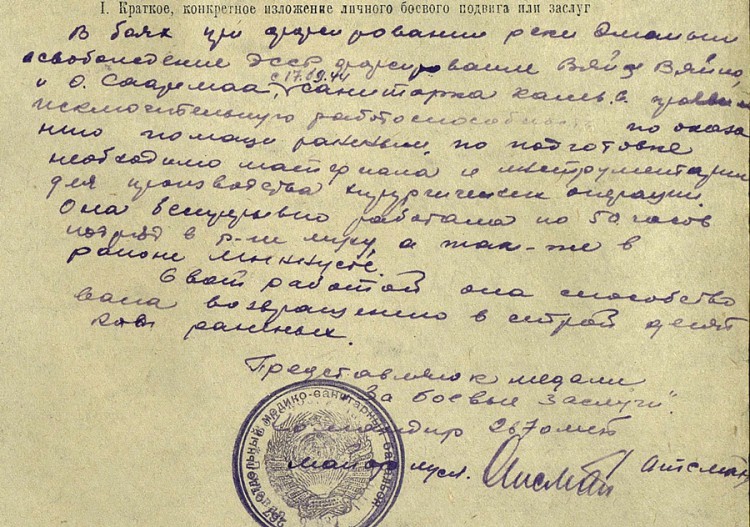 I. Краткое, конкретное изложение личного боевого подвига или заслуг
В боях при форсировании реки Эмайыги
освобождение ЭССР форсирование Вяйз Вяйно,
с 17.09.44
и о. Саарема, санитарка
исключительную работоспособность по оказа
нию помощи раненым, по подготовке
необходимо материала и инструментария
для производства хирургических операций.
Она беспрерывно работала по 50 часов
подряд в а так-же в
районе
Своей работой она способство
вала возвращению в строй десят
ков раненых.
Представляю к медали
"За боевые заслуги".
Командир 267 омсб
майор м/сл.
отдельный медико-санитарный батальон